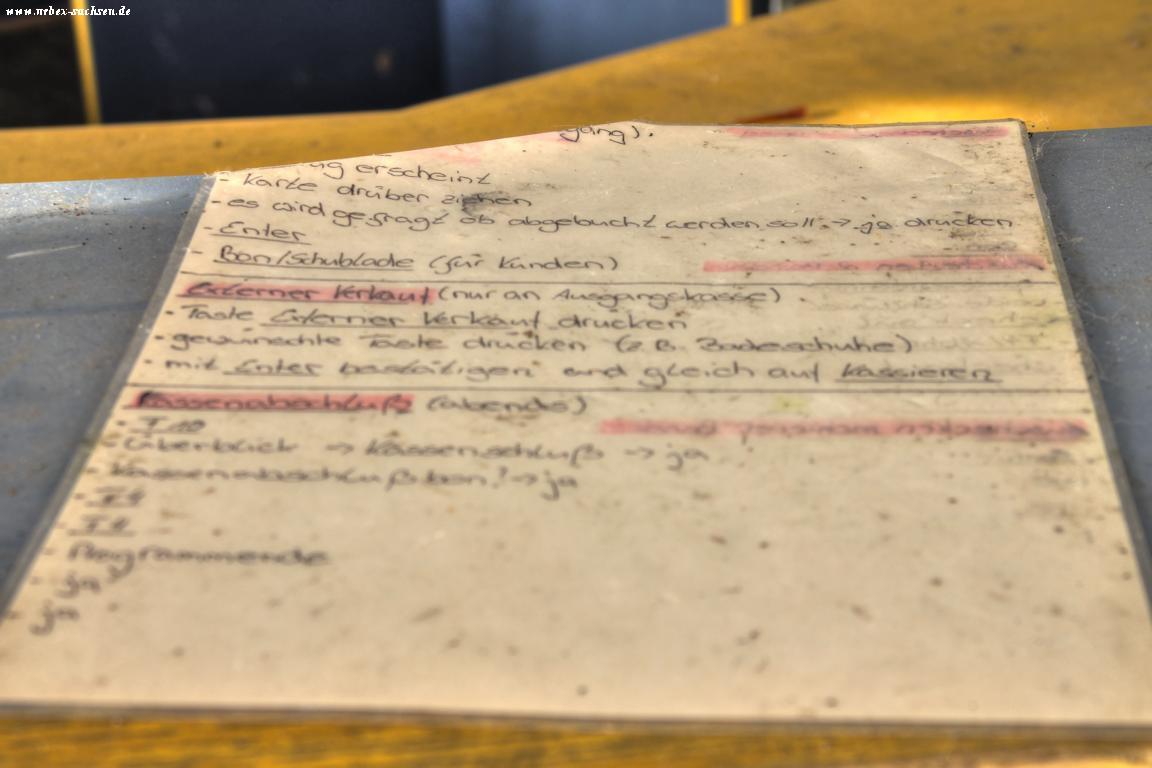 www.urbex-sachsen.de
gang).
erscheint
- Karte drüber ziehen
- es wird gefragt ob abgebucht werden soll → ja drücken
- Enter
- Bon/Schublade (für Kunden)
Externer Verkauf (nur an Ausgangskasse)
- Taste Externer Verkauf drücken
- gewünschte Taste drücken (z.B. Badeschuhe)
- mit Enter bestätigen und gleich auf Kassieren
Kassenabschluß (abends)
- Überblick → Kassenschluß → ja
- Kassenabschlußbon? → ja
- Programmende
- ja
- ja